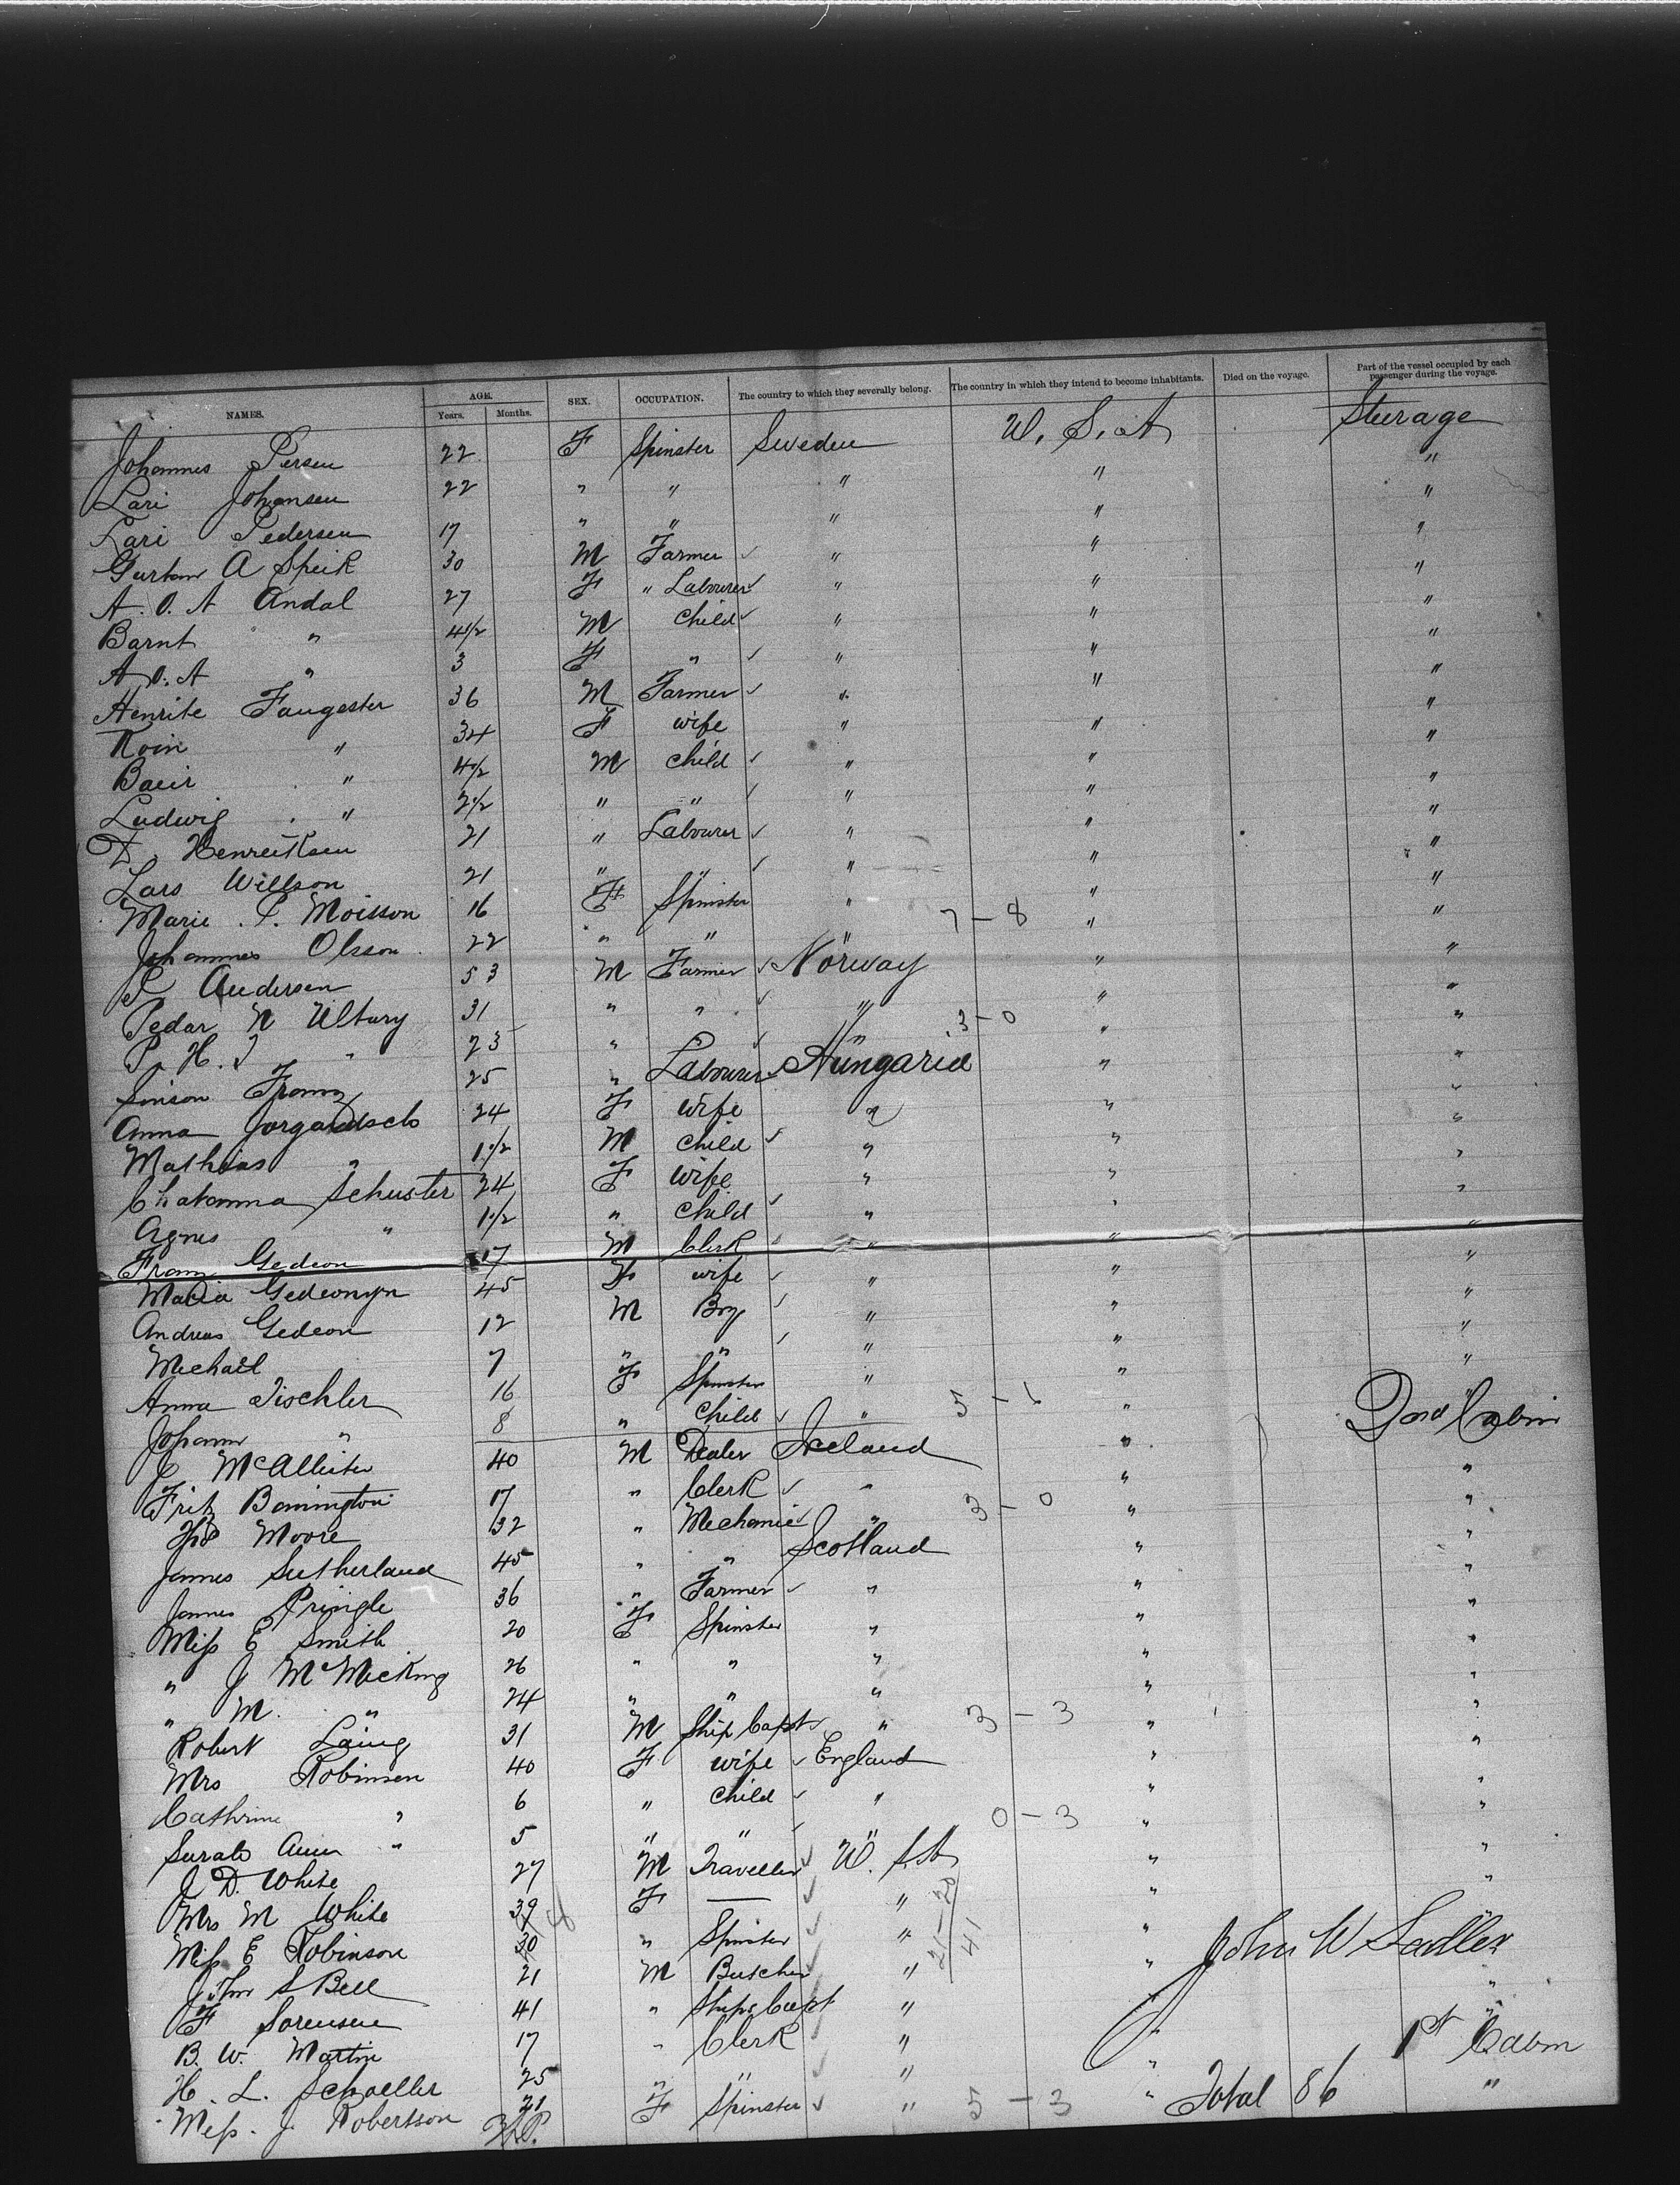 NAMES. AGE. Years. Months. SEX. OCCUPATION. The country to which they severally belong. The country in which they intend to become inhabitants. Died on the voyage. Part of the vessel occupied by each passenger during the voyage.
Johannes Persen 22 F Spinster Sweden U. S. A Steerage
Lari Johansen 22 " " " " "
Lari Pedersen 17 " " " " "
Gustav A Speik 30 M Farmer " " "
A. O. A Andal 27 F " Labourer " " "
Barnt " 4 1/2 M Child " " "
A. O. A " 3 F " " " "
Henrite Faugester 36 M Farmer " " "
Roin " 34 F wife " " "
Baeir " 4 1/2 M child " " "
Ludwig " 2 1/2 " " " " "
Henreiksen 21 " Labourer " " "
Lars Willson 21 " " " " "
Marie P. Moisson 16 F Spinster " " "
Johannes Olsson 22 " " " 7-8 " "
P Andersen 53 M Farmer Norway " "
Pedar N Ultury 31 " " " " "
P. H. J " 23 " " " 3-0 " "
Sinson Franz 25 " Labourer Hungaria " "
Anna Jorgardsch 24 F Wife " " "
Mathias " 1 1/2 M child " " "
Schuster 24 F Wife " " "
Agnes " 1 1/2 " Child " " "
Franz Gedeon 17 M Clerk " " "
Maria Gedeonyn 45 F wife " " "
Andreas Gedeon 12 M Boy " " "
Michail 7 " " " " "
Anna Tischler 16 F Spinster " " "
Johann " 8 " Child " 5-1 " "
J McAllister 40 M Dealer Ireland " 2nd Cabin
Fritz Bonnington 17 " Clerk " " "
Moore 32 " Mechanic " 3-0 " "
James Sutherland 45 " " Scotland " "
James Pringle 36 " Farmer " " "
Miss E Smith 20 F Spinster " " "
" J McMicking 26 " " " " "
" M. " 24 " " " " "
Robert Laing 31 M Ship Capt " 3-3 " "
Mrs Robinson 40 F wife England " "
Cathrine " 6 " Child " " "
Sarah Ann " 5 " " " 0-3 " "
J D. White 27 M Traveller U. S. A " "
Mrs M White 39 F — " " "
Miss E Robinson 30 " Spinster " 21-20 41 "
John S Bell 21 M Butcher " " John W Sadler
F Sorensen 41 " Ships Capt " "
B. W. Martin 17 " Clerk " " "
H. L. Schoeller 25 " " " " 1st Cabin
Miss. J. Robertson 21 F Spinster " 5-3 " Total 86 "